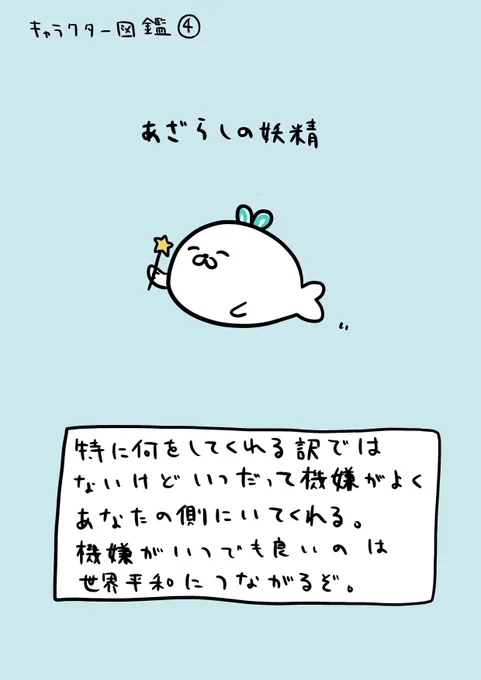 キャラクター図鑑④
あざらしの妖精
特に何をしてくれる訳では
ないけどいつだって機嫌がよく
あなたの側にいてくれる。
機嫌がいつでも良いのは
世界平和につながるぞ。